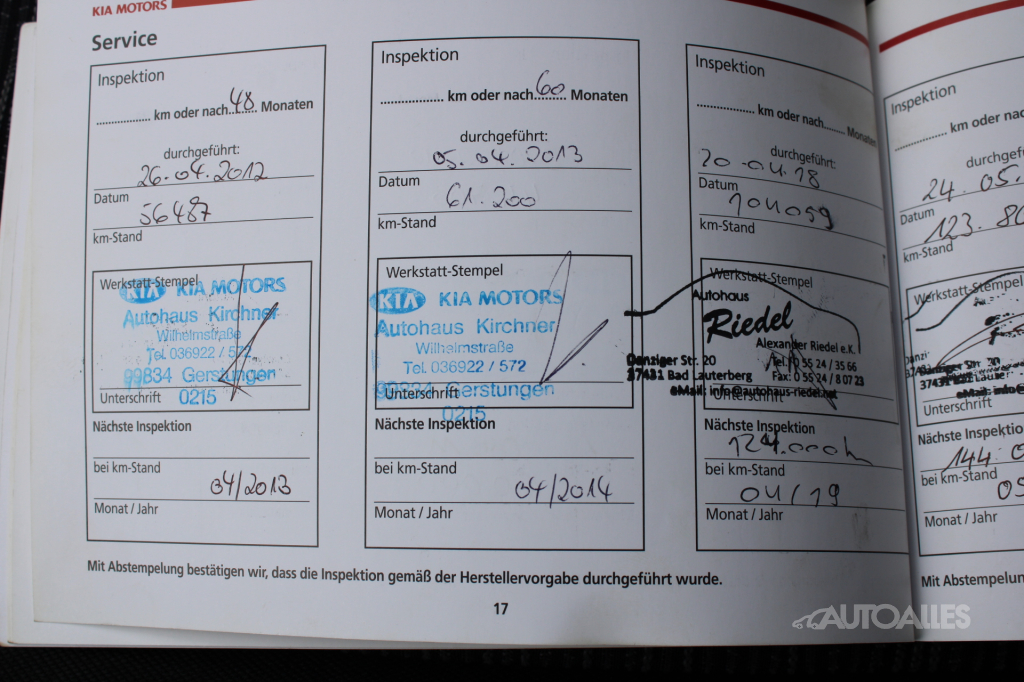 KIA MOTORS
Service
Inspektion
.................. km oder nach 48 Monaten
durchgeführt:
26.04.2012
Datum
56487
km-Stand
Werkstatt-Stempel
KIA KIA MOTORS
Autohaus Kirchner
Wilhelmstraße
Tel. 036922 / 572
99834 Gerstungen
Unterschrift 0215
Nächste Inspektion
bei km-Stand
04/2013
Monat / Jahr
Inspektion
.................. km oder nach 60 Monaten
durchgeführt:
05.04.2013
Datum
61.200
km-Stand
Werkstatt-Stempel
KIA KIA MOTORS
Autohaus Kirchner
Wilhelmstraße
Tel. 036922 / 572
99834 Gerstungen
Unterschrift
0215
Nächste Inspektion
bei km-Stand
04/2014
Monat / Jahr
Inspektion
.................. km oder nach........ Monaten
durchgeführt:
20.04.18
Datum
104059
km-Stand
Werkstatt-Stempel
Autohaus
Riedel
Alexander Riedel e.K.
Danziger Str. 20 Tel.: 0 55 24 / 35 66
37431 Bad Lauterberg Fax: 0 55 24 / 8 07 23
eMail: info@autohaus-riedel.net
Unterschrift
Nächste Inspektion
124.000
bei km-Stand
04/19
Monat / Jahr
Mit Abstempelung bestätigen wir, dass die Inspektion gemäß der Herstellervorgabe durchgeführt wurde.
17
Inspektion
.................. km oder nac
durchgef
24.05.
Datum
123.80
km-Stand
Werkstatt-Stempel
Unterschrift
Nächste Inspektio
144.0
bei km-Stand
Monat / Jahr
Mit Abstempelun
AUTOALLES